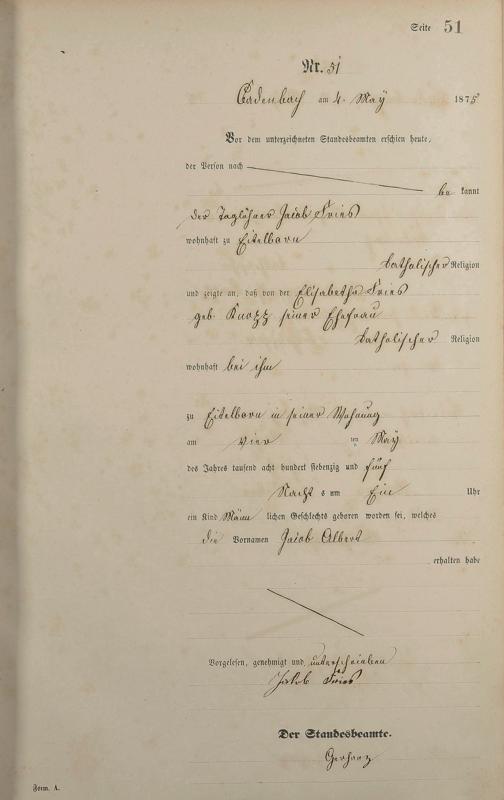 Seite 51
Nr. 51
Cadenbach am 4. May 1875
Vor dem unterzeichneten Standesbeamten erschien heute,
der Person nach
be kannt
der Taglöhner Jacob Fries
wohnhaft zu Eitelborn
katholischer Religion
und zeigte an, daß von der Elisabetha Fries
geb. Knopp seiner Ehefrau
katholischer Religion
wohnhaft bei ihm
zu Eitelborn in seiner Wohnung
am vier ten May
des Jahres tausend acht hundert siebenzig und fünf
Nacht s um Ein Uhr
ein Kind Männ lichen Geschlechts geboren worden sei, welches
die Vornamen Jacob Albert
erhalten habe
Vorgelesen, genehmigt und unterschrieben
Jakob Fries
Der Standesbeamte.
Form. A.